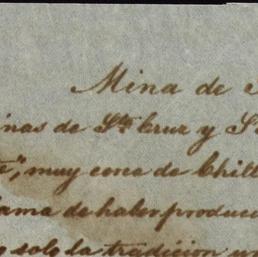 Mina de
inas de Sta Cruz y S
muy cerca de Chill
fama de haber produci
solo la tradicion